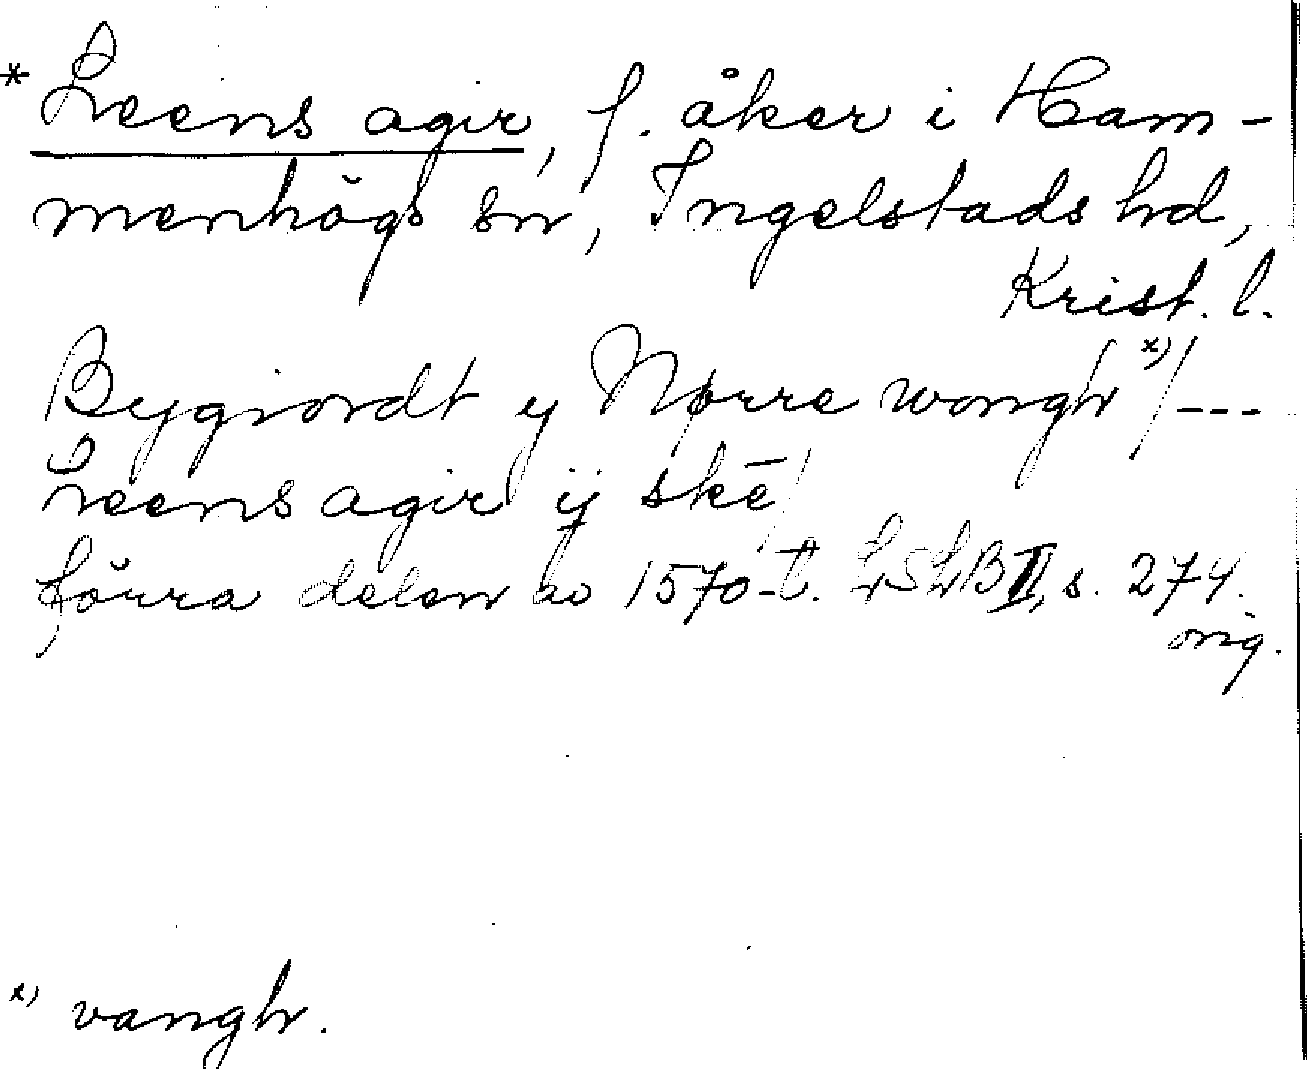 * Leens agir, f. åker i Ham-
menhögs sn, Ingelstads hd,
Krist. l.
Bygiordt y Nørre wongh x) / ---
Leens agir ij skē /
förra delen av 1570-t. LSLB II, s. 274.
orig.
x) vangh.